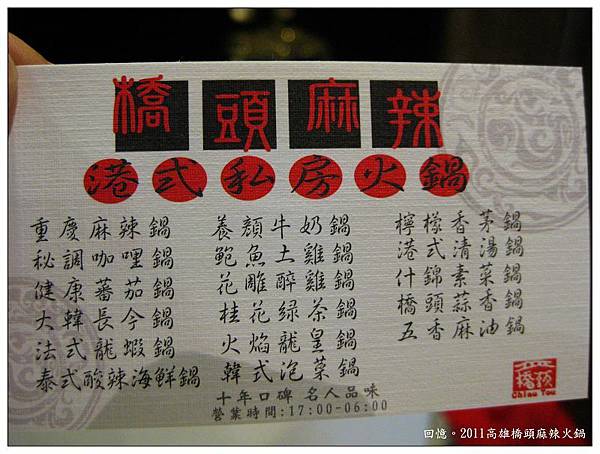 橋頭麻辣
港式私房火鍋
重慶麻辣鍋
秘調咖哩鍋
健康蕃茄鍋
大韓長今鍋
法式龍蝦鍋
泰式酸辣海鮮鍋
養顏牛奶鍋
鮑魚土雞鍋
花雕醉雞鍋
桂花綠茶鍋
火焰龍皇鍋
韓式泡菜鍋
檸檬香茅鍋
港式清湯鍋
什錦素菜鍋
橋頭蒜香鍋
五香麻油鍋
十年口碑 名人品味
營業時間:17:00-06:00
橋頭
Chiau You
回憶。2011高雄橋頭麻辣火鍋